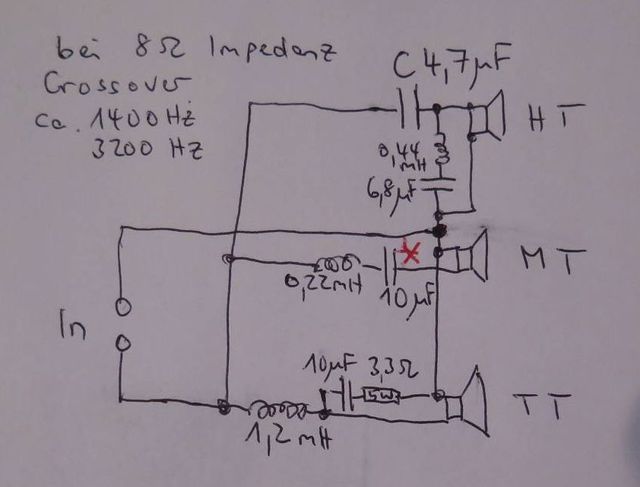 bei 8Ω Impedanz
Crossover
ca. 1400Hz
3200 Hz
C 4,7µF
HT
0,44
mH
6,8µF
MT
0,22mH
10µF
In
10µF 3,3Ω
5W
TT
1,2mH